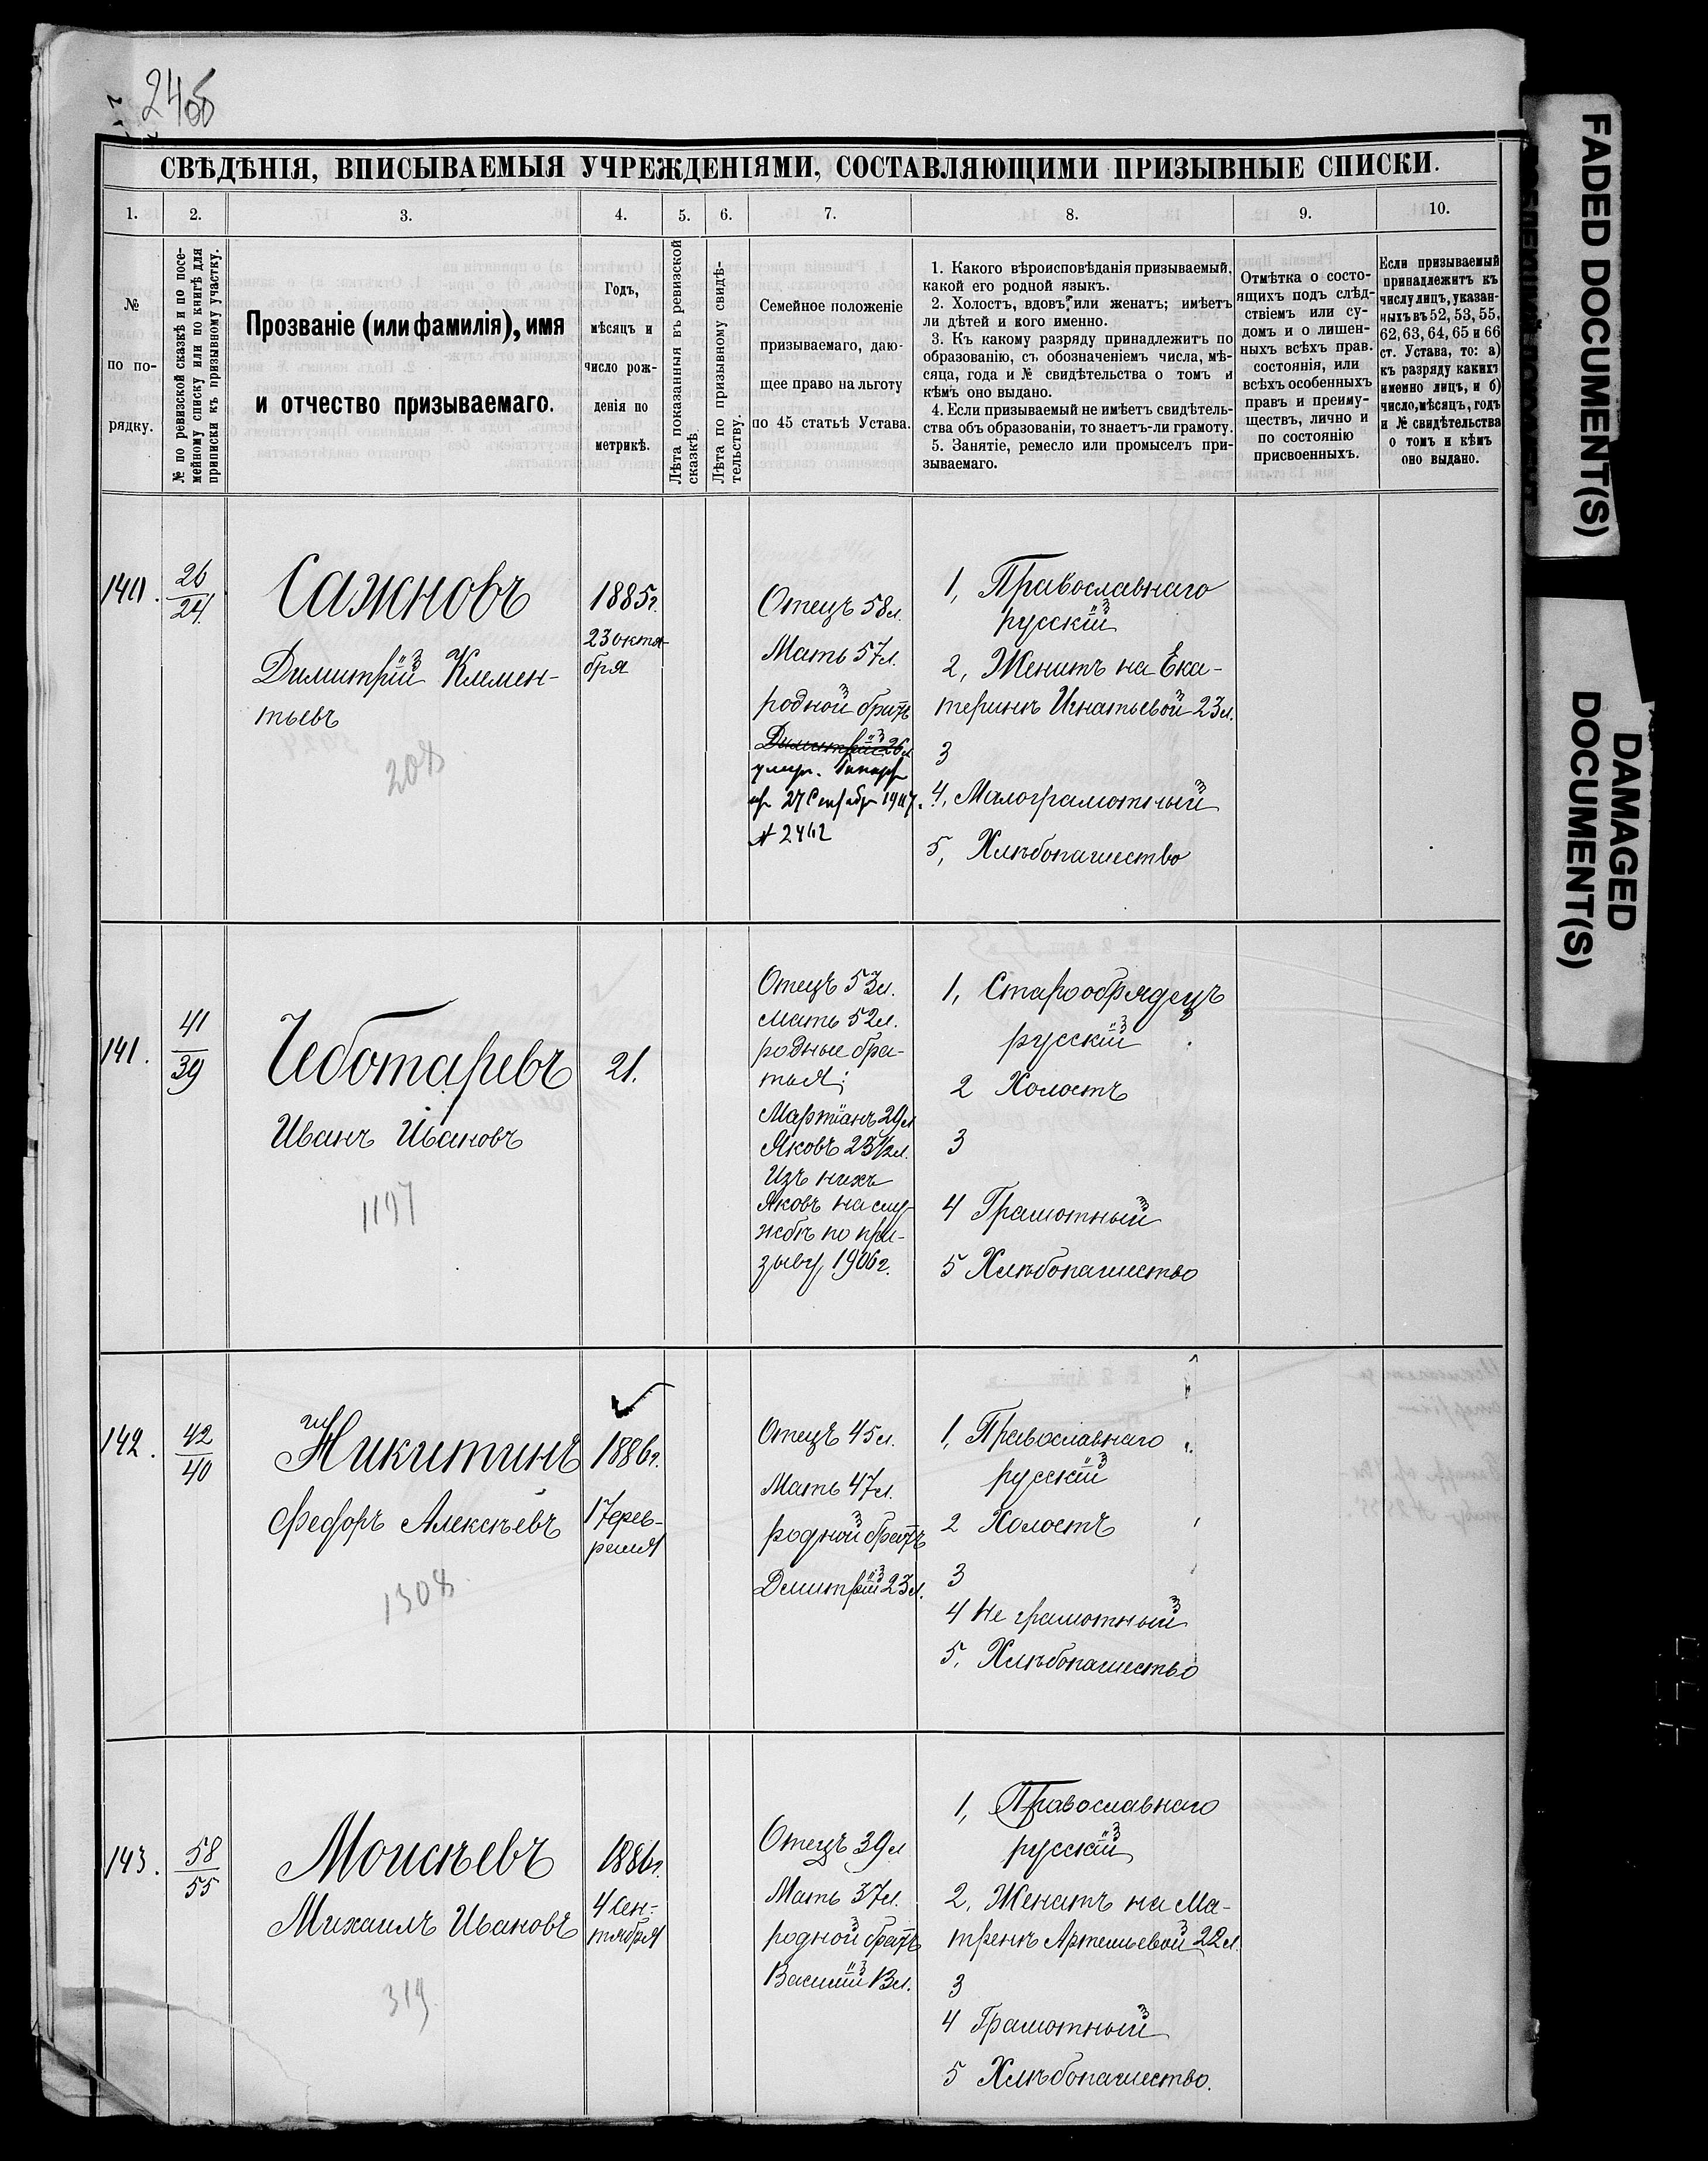 24об
СВѢДѢНІЯ, ВПИСЫВАЕМЫЯ УЧРЕЖДЕНІЯМИ, СОСТАВЛЯЮЩИМИ ПРИЗЫВНЫЕ СПИСКИ.
1. 2. 3. 4. 5. 6. 7. 8. 9. 10.
№
по по-
рядку.
№ по ревизской сказкѣ и по посе-
мейному списку или по книгѣ для
приписки къ призывному участку.
Прозваніе (или фамилія), имя
и отчество призываемаго.
Годъ,
мѣсяцъ и
число рож-
денія по
метрикѣ.
Лѣта показанныя въ ревизской
сказкѣ.
Лѣта по призывному свидѣ-
тельству.
Семейное положеніе
призываемаго, даю-
щее право на льготу
по 45 статьѣ Устава.
1. Какого вѣроисповѣданія призываемый,
какой его родной языкъ.
2. Холостъ, вдовъ, или женатъ; имѣетъ
ли дѣтей и кого именно.
3. Къ какому разряду принадлежитъ по
образованію, съ обозначеніемъ числа, мѣ-
сяца, года и № свидѣтельства о томъ и
кѣмъ оно выдано.
4. Если призываемый не имѣетъ свидѣтель-
ства объ образованіи, то знаетъ-ли грамоту.
5. Занятіе, ремесло или промыселъ при-
зываемаго.
Отмѣтка о состо-
ящихъ подъ слѣд-
ствіемъ или су-
домъ и о лишен-
ныхъ всѣхъ прав.
состоянія, или
всѣхъ особенныхъ
правъ и преиму-
ществъ, лично и
по состоянію
присвоенныхъ.
Если призываемый
принадлежитъ къ
числу лицъ, указан-
ныхъ въ 52, 53, 55,
62, 63, 64, 65 и 66
ст. Устава, то: а)
къ разряду какихъ
именно лицъ, и б)
число, мѣсяцъ, годъ
и № свидѣтельства
о томъ и кѣмъ
оно выдано.
140.
26
24
Сажновъ
Димитрій Клемен-
тьевъ
208
1885г.
23 октя-
бря
Отецъ 58л.
Мать 57л.
родной братъ
Димитрій 26л
27 Сентября 1907.
№ 2442
1, Православнаго
русскій
2, Женатъ на Ека-
теринѣ Игнатьевой 23л.
3
4, Малограмотный
5, Хлѣбопашество
141.
41
39
Чеботаревъ
Иванъ Ивановъ
1197
21.
Отецъ 53л.
Мать 52л.
родные бра-
тья:
Мартіанъ 29л
Яковъ 23½л.
Изъ нихъ
Яковъ на слу-
жбѣ по при-
зыву 1906г.
1, Старообрядецъ
русскій
2 Холостъ
3
4 Грамотный
5 Хлѣбопашество
142.
42
40
Никитинъ
Федоръ Алексѣевъ
1308
1886г.
17 фев-
раля
Отецъ 45л.
Мать 47л.
родной братъ
Дмитрій 23л.
1, Православнаго
русскій
2 Холостъ
3
4 Не грамотный
5, Хлѣбопашество
143.
58
55
Моисѣевъ
Михаилъ Ивановъ
319
1886г.
4 Сен-
тября
Отецъ 39л
Мать 37л.
родной братъ
Василій 13л.
1, Православнаго
русскій
2, Женатъ на Ма-
тренѣ Артемьевой 22л.
3
4 Грамотный
5 Хлѣбопашество.
FADED DOCUMENT(S)
DAMAGED
DOCUMENT(S)